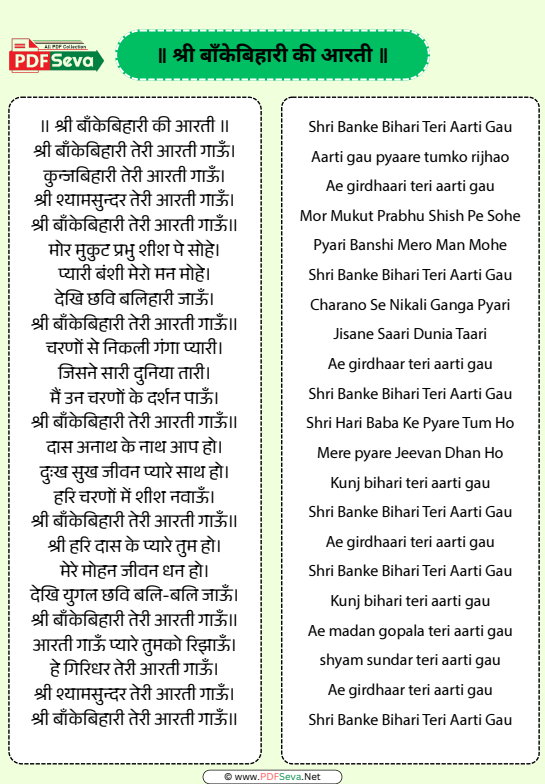 All PDF Collection
PDF Seva
॥ श्री बाँकेबिहारी की आरती ॥
॥ श्री बाँकेबिहारी की आरती ॥
श्री बाँकेबिहारी तेरी आरती गाऊँ।
कुन्जबिहारी तेरी आरती गाऊँ।
श्री श्यामसुन्दर तेरी आरती गाऊँ।
श्री बाँकेबिहारी तेरी आरती गाऊँ॥
मोर मुकुट प्रभु शीश पे सोहे।
प्यारी बंशी मेरो मन मोहे।
देखि छवि बलिहारी जाऊँ।
श्री बाँकेबिहारी तेरी आरती गाऊँ॥
चरणों से निकली गंगा प्यारी।
जिसने सारी दुनिया तारी।
मैं उन चरणों के दर्शन पाऊँ।
श्री बाँकेबिहारी तेरी आरती गाऊँ॥
दास अनाथ के नाथ आप हो।
दुःख सुख जीवन प्यारे साथ हो।
हरि चरणों में शीश नवाऊँ।
श्री बाँकेबिहारी तेरी आरती गाऊँ॥
श्री हरि दास के प्यारे तुम हो।
मेरे मोहन जीवन धन हो।
देखि युगल छवि बलि-बलि जाऊँ।
श्री बाँकेबिहारी तेरी आरती गाऊँ॥
आरती गाऊँ प्यारे तुमको रिझाऊँ।
हे गिरिधर तेरी आरती गाऊँ।
श्री श्यामसुन्दर तेरी आरती गाऊँ।
श्री बाँकेबिहारी तेरी आरती गाऊँ॥
Shri Banke Bihari Teri Aarti Gau
Aarti gau pyaare tumko rijhao
Ae girdhaari teri aarti gau
Mor Mukut Prabhu Shish Pe Sohe
Pyari Banshi Mero Man Mohe
Shri Banke Bihari Teri Aarti Gau
Charano Se Nikali Ganga Pyari
Jisane Saari Dunia Taari
Ae girdhaar teri aarti gau
Shri Banke Bihari Teri Aarti Gau
Shri Hari Baba Ke Pyare Tum Ho
Mere pyare Jeevan Dhan Ho
Kunj bihari teri aarti gau
Shri Banke Bihari Teri Aarti Gau
Ae girdhaari teri aarti gau
Shri Banke Bihari Teri Aarti Gau
Kunj bihari teri aarti gau
Ae madan gopala teri aarti gau
shyam sundar teri aarti gau
Ae girdhaar teri aarti gau
Shri Banke Bihari Teri Aarti Gau
© www.PDFSeva.Net